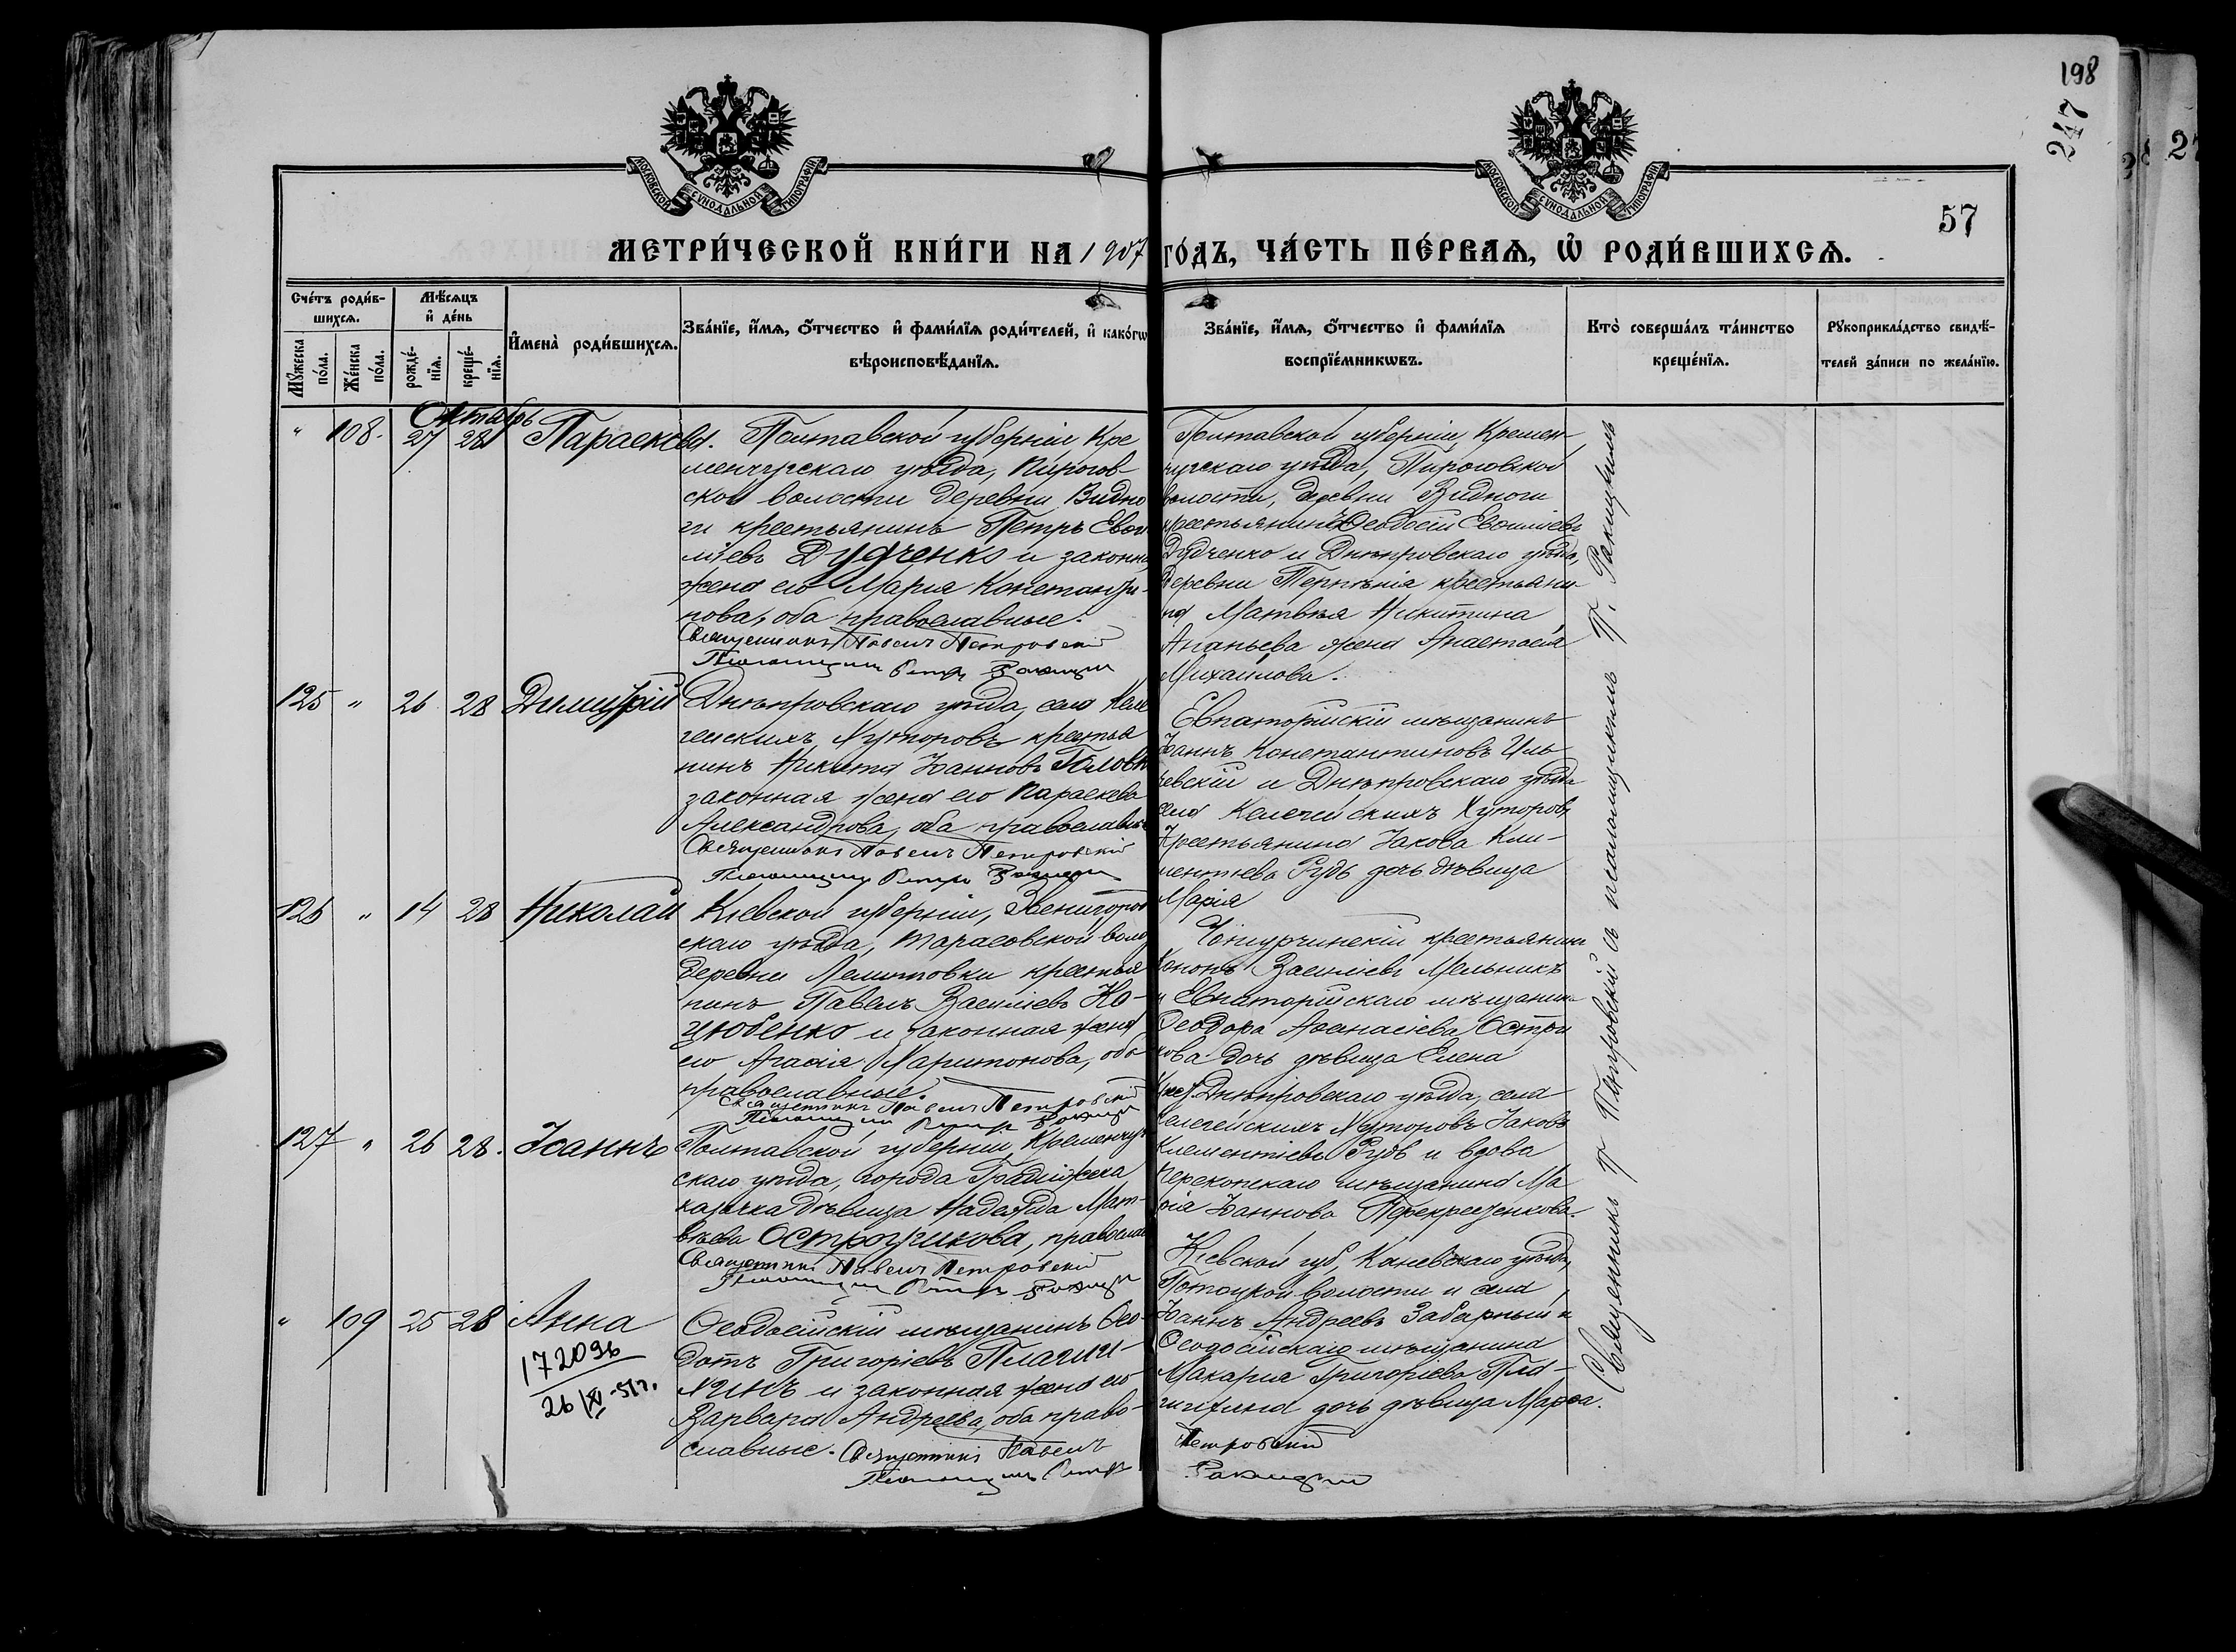 198
247
57
МОСКОВСКОЙ СѴНОДАЛЬНОЙ ТИПОГРАФІИ
МОСКОВСКОЙ СѴНОДАЛЬНОЙ ТИПОГРАФІИ
МЕТРИ́ЧЕСКОЙ КНИ́ГИ НА 1907 ГО́ДЪ, ЧА́СТЬ ПЕ́РВАѦ, Ѡ҆ РОДИ́ВШИХСѦ.
Сче́тъ роди́в-
шихсѧ.
Мꙋ́жеска по́ла.
Же́нска по́ла.
Мѣ́сѧцъ
и҆ де́нь
рожде́-
нїѧ.
креще́-
нїѧ.
И҆мена̀ роди́вшихсѧ.
Зва́нїе, и҆́мѧ, ѻ҆́тчество и҆ фами́лїѧ роди́телей, и҆ како́гѡ
вѣроисповѣ́данїѧ.
Зва́нїе, и҆́мѧ, ѻ҆́тчество и҆ фами́лїѧ
воспрїе́мникѡвъ.
Кто̀ соверша́лъ та́инство
креще́нїѧ.
Рꙋкоприкла́дство свидѣ́-
телей за́писи по жела́нїю.
Октябрь
" 108. 27 28 Параскева.
Полтавской губерніи, Кре
менчугскаго уѣзда, Пирогов-
ской волости деревни Видно
ги крестьянинъ Петръ Еѵси
міевъ Дудченко и законная
жена его Марія Константи-
нова, оба православные.
Священникъ Павелъ Петровскій
Псаломщикъ Петръ Ракицкій
Полтавской губерніи, Кремен-
чугскаго уѣзда, Пироговской
волости, деревни Видноги
крестьянинъ Ѳеодосій
Дудченко и Днѣпровскаго уѣзда,
деревни крестьяни
на Матвѣя Никитина
Ананьева жена Анастасія
Михайлова.
125 " 26 28 Димитрій
Днѣпровскаго уѣзда, села Келе
гейскихъ Хуторовъ крестья
нинъ Никита Іоанновъ
законная жена его Параскева
Александрова, оба православные
Священникъ Павелъ Петровскій
Псаломщикъ Петръ Ракицкій
Евпаторійскій мѣщанинъ
Іоаннъ Константиновъ Иль
чевскій и Днѣпровскаго уѣзда
села Келегейскихъ Хуторовъ
Крестьянина Іакова Кли-
ментьева Рудь дочь дѣвица
Марія
126 " 14 28 Николай
Кіевской губерніи, Звенигород
скаго уѣзда, Тарасовской волос
деревни крестья
нинъ Павелъ Василіевъ Ко-
цюбенко и законная жена
его Агаѳія Харитонова, оба
православные.
Священникъ Павелъ Петровскій
Псаломщикъ Петръ Ракицкій
крестьянинъ
Кононъ Василіевъ Мельникъ
и Евпаторійскаго мѣщанина
Ѳеодора Аѳанасіева Остри
кова дочь дѣвица Елена
127 " 26 28. Іоаннъ
Полтавской губерніи, Кременчуг
скаго уѣзда, города Градижска
казачка дѣвица Надежда Мат-
вѣева Остроушкова, православ
Священникъ Павелъ Петровскій
Псаломщикъ Петръ Ракицкій
Крест. Днѣпровскаго уѣзда, села
Келегейскихъ Хуторовъ Іаковъ
Климентіевъ Рудь и вдова
Перекопскаго мѣщанина Ма
рія Іоаннова Перекрещенкова.
" 109 25 28 Анна
172096
26/XI-51г.
Ѳеодосійскій мѣщанинъ Ѳео-
дотъ Григоріевъ Плагіи-
хинъ и законная жена его
Варвара Андреева, оба право-
славные. Священникъ Павелъ Петровскій
Псаломщикъ Петръ Ракицкій
Кіевской губ, Каневскаго уѣзда,
Потоцкой волости и села
Іоаннъ Андреевъ Забарный и
Ѳеодосійскаго мѣщанина
Макарія Григоріева Пла-
гихина дочь дѣвица Марѳа.
Священникъ П. Петровскій съ псаломщикомъ П. Ракицкимъ